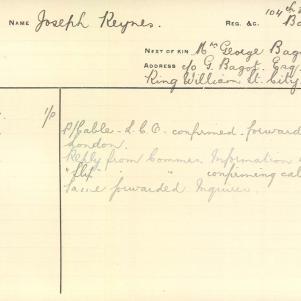 NAME Joseph Keynes. REG. &C. 104th
Ba
NEXT OF KIN Mrs George Bag
ADDRESS c/o G. Bagot, Esq.
King William St. City
1/0
P/Cable - L.C.O. confirmed. forwarded
London.
Reply from Common Information
" " confirming cal
Same forwarded Inquirer.